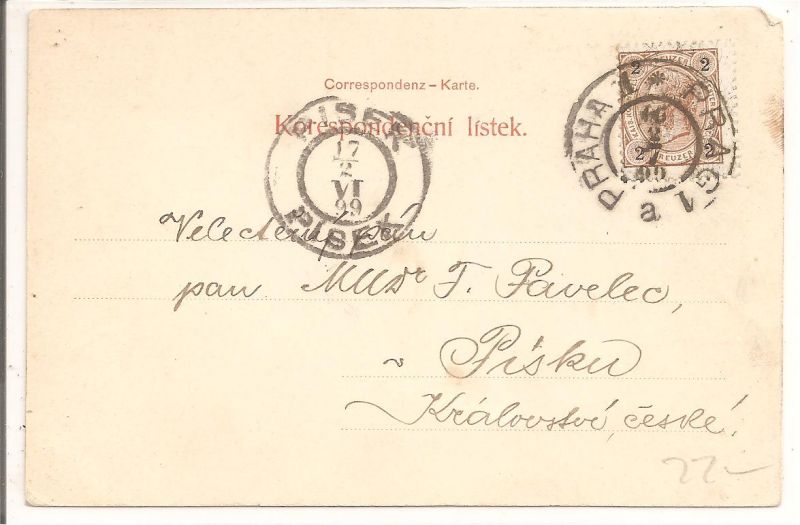 Correspondenz – Karte.
Korespondenční lístek.
PISEK
17
2
VI
99
PISEK
PRAHA 1 * PRAG 1
a
16
2
99
2 2
2 2
KREUZER
Velectěný pán
pan MUDr T. Pavelec,
v Písku
Království české.
22–